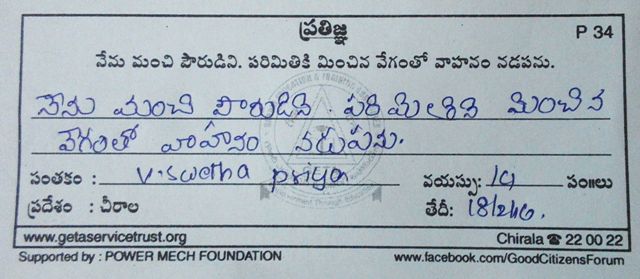 ప్రతిజ్ఞ
P 34
నేను మంచి పౌరుడిని. పరిమితికి మించిన వేగంతో వాహనం నడపను.
నేను మంచి పౌరుడిని. పరిమితికి మించిన
వేగంతో వాహనం నడుపను.
సంతకం : V. Swetha priya వయస్సు: 19 సం॥లు
ప్రదేశం : చీరాల తేదీ: 18/2/16.
www.getaservicetrust.org Chirala ☎ 22 00 22
Supported by : POWER MECH FOUNDATION www.facebook.com/GoodCitizensForum